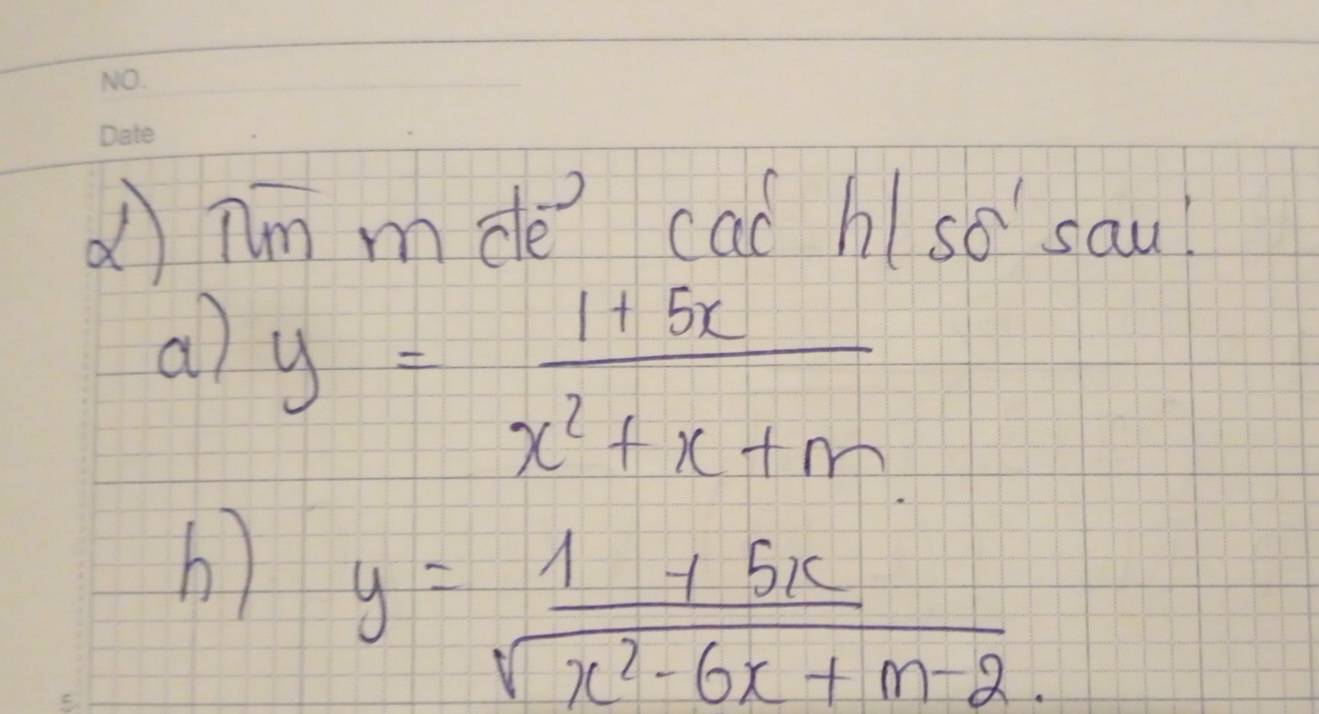 NO.
Date
2) Tìm m để các h/số sau:
a) y = \frac{1 + 5x}{x^2 + x + m}.
b) y = \frac{1 + 5x}{\sqrt{x^2 - 6x + m - 2}}.